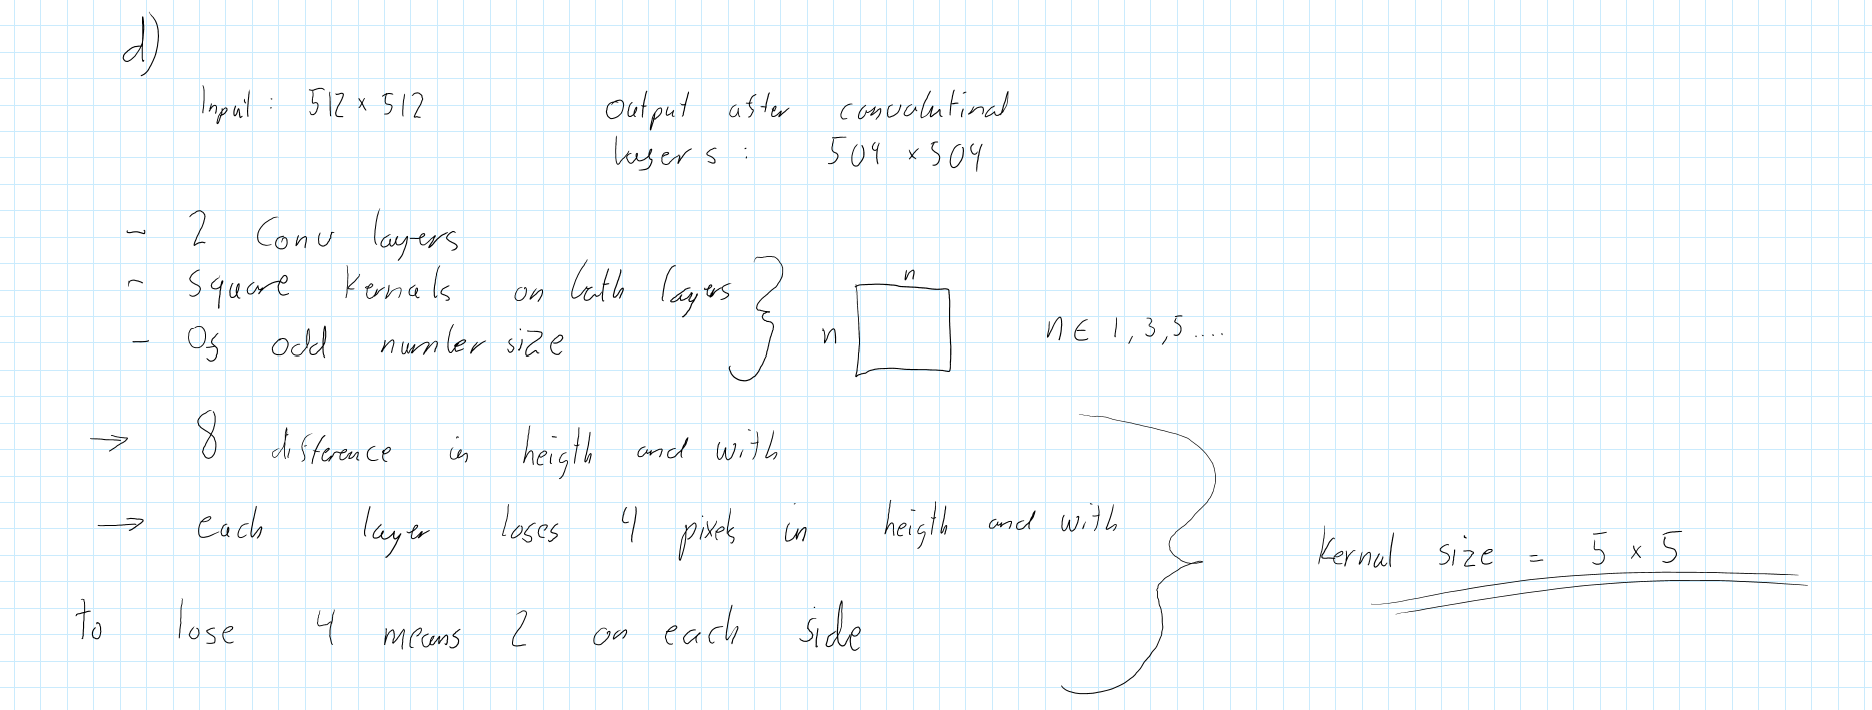 d)
Input : 512 × 512
output after convolutinal
layers : 504 × 504
- 2 Conv layers
- square kernals on both layers
- Of odd number size
n
n
n ∈ 1, 3, 5 ....
→ 8 difference in heigth and with
→ each layer loses 4 pixels in heigth and with
to lose 4 means 2 on each side
Kernal size = 5 × 5